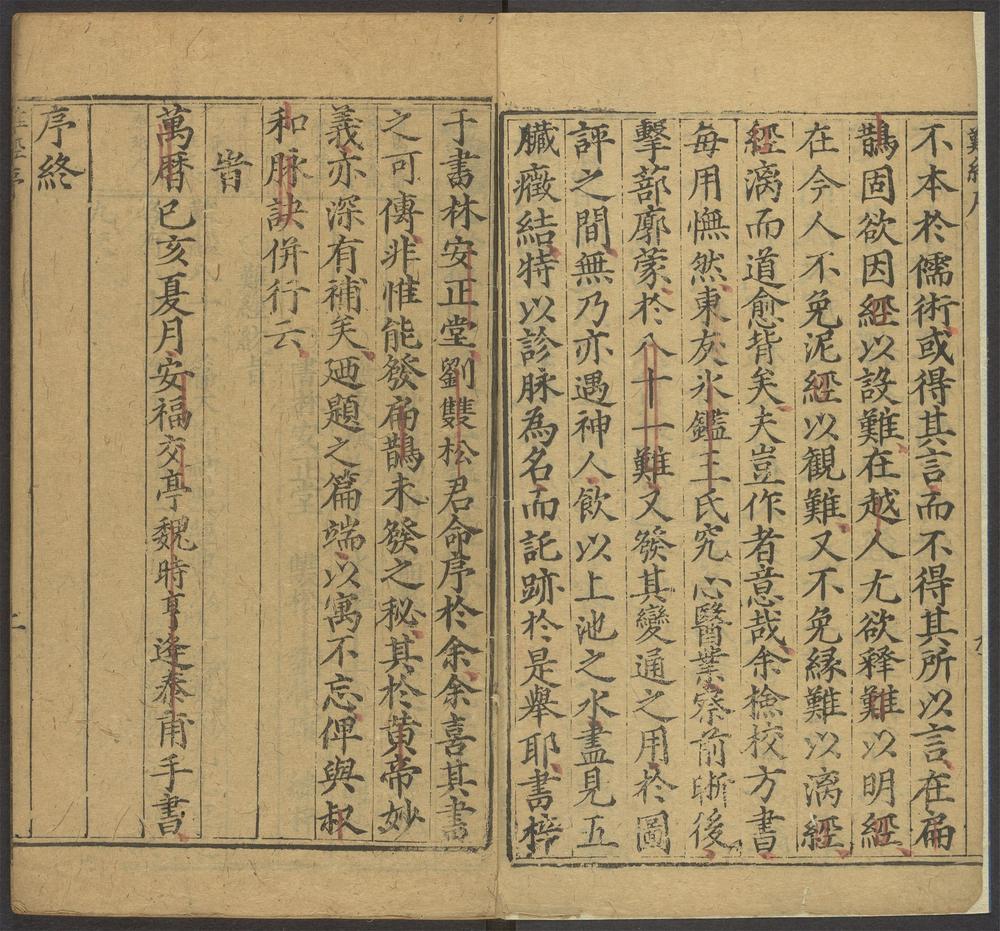 不本於儒術或得其言而不得其所以言在扁
鵲固欲因經以設難在越人尤欲释難以明經
在今人不免泥經以観難又不免縁難以漓經
經漓而道愈背矣夫豈作者意哉余撿校方書
每用憮然東友氷鑑王氏究心醫業祭前晰後
擊蔀廓蒙於八十一難又發其變通之用於圖
評之間無乃亦遇神人飲以上池之水盡見五
臟癥結特以診脉為名而託跡於是舉耶書梓
于書林安正堂劉雙松君命序於余余喜其書
之可傳非惟能發扁鵲未發之秘其於黄帝妙
義亦深有補矣廼題之篇端以寓不忘俾與叔
和脉訣併行云
旹
萬曆己亥夏月安福交亭魏時亨逢泰甫手書
序終
二